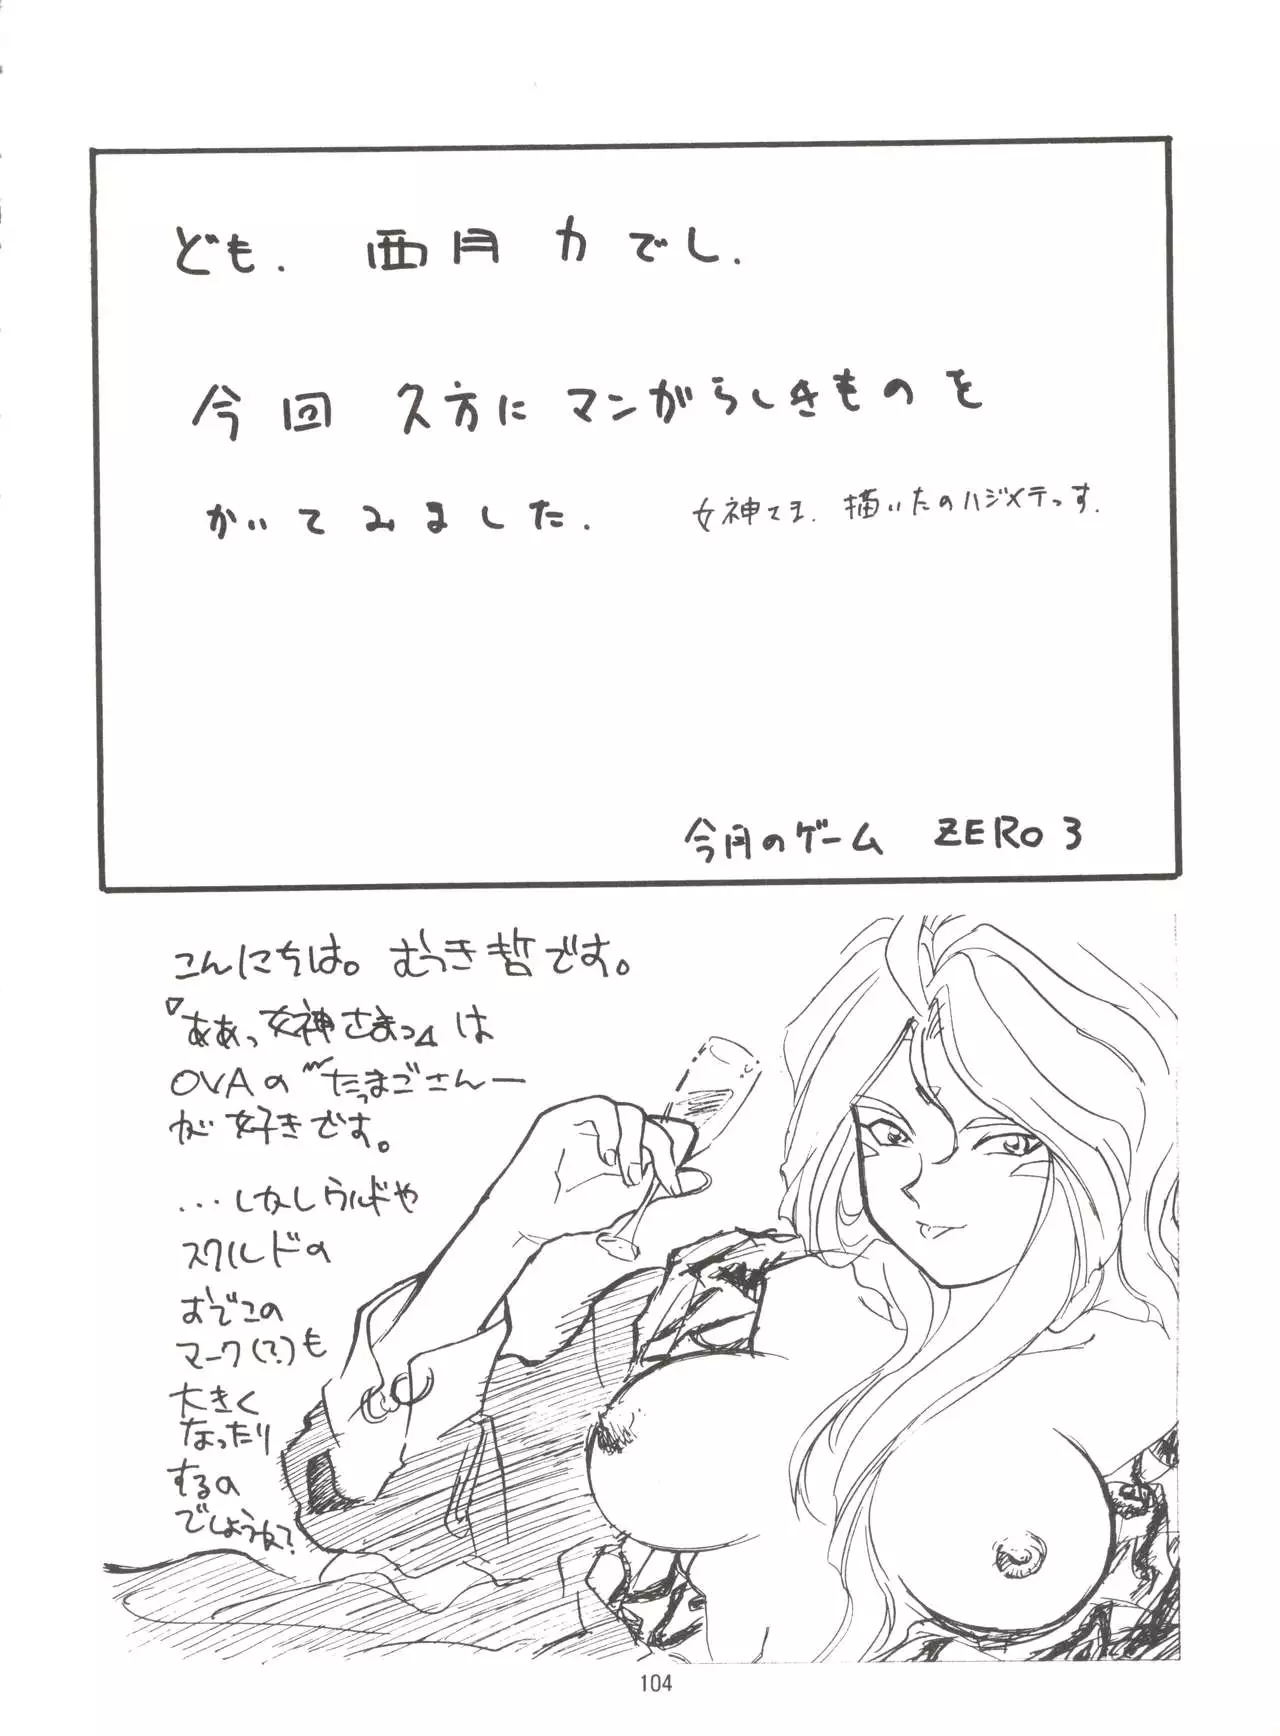 ども. 西月力でし.
今回 久方にマンガらしきものを
かいてみました. 女神さま. 描いたのハジメテっす.
今月のゲーム ZERO3
こんにちは。むつき哲です。
『ああっ女神さまっ』は
OVAの"たまごさんー
が好きです。
...しかしウルドや
スクルドの
おでこの
マーク(?)も
大きく
なったり
するの
でしょうね?
104